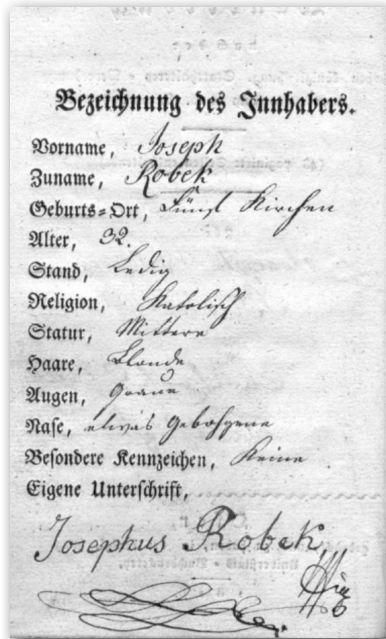 Bezeichnung des Innhabers.
Vorname, Joseph
Zuname, Robek
Geburts=Ort, Fünf Kirchen
Alter, 32.
Stand, Ledig
Religion, Katolisch
Statur, Mittere
Haare, Blonde
Augen, Graue
Nase, etwas gebohgene
Besondere Kennzeichen, Keine
Eigene Unterschrift,
Josephus Robek,